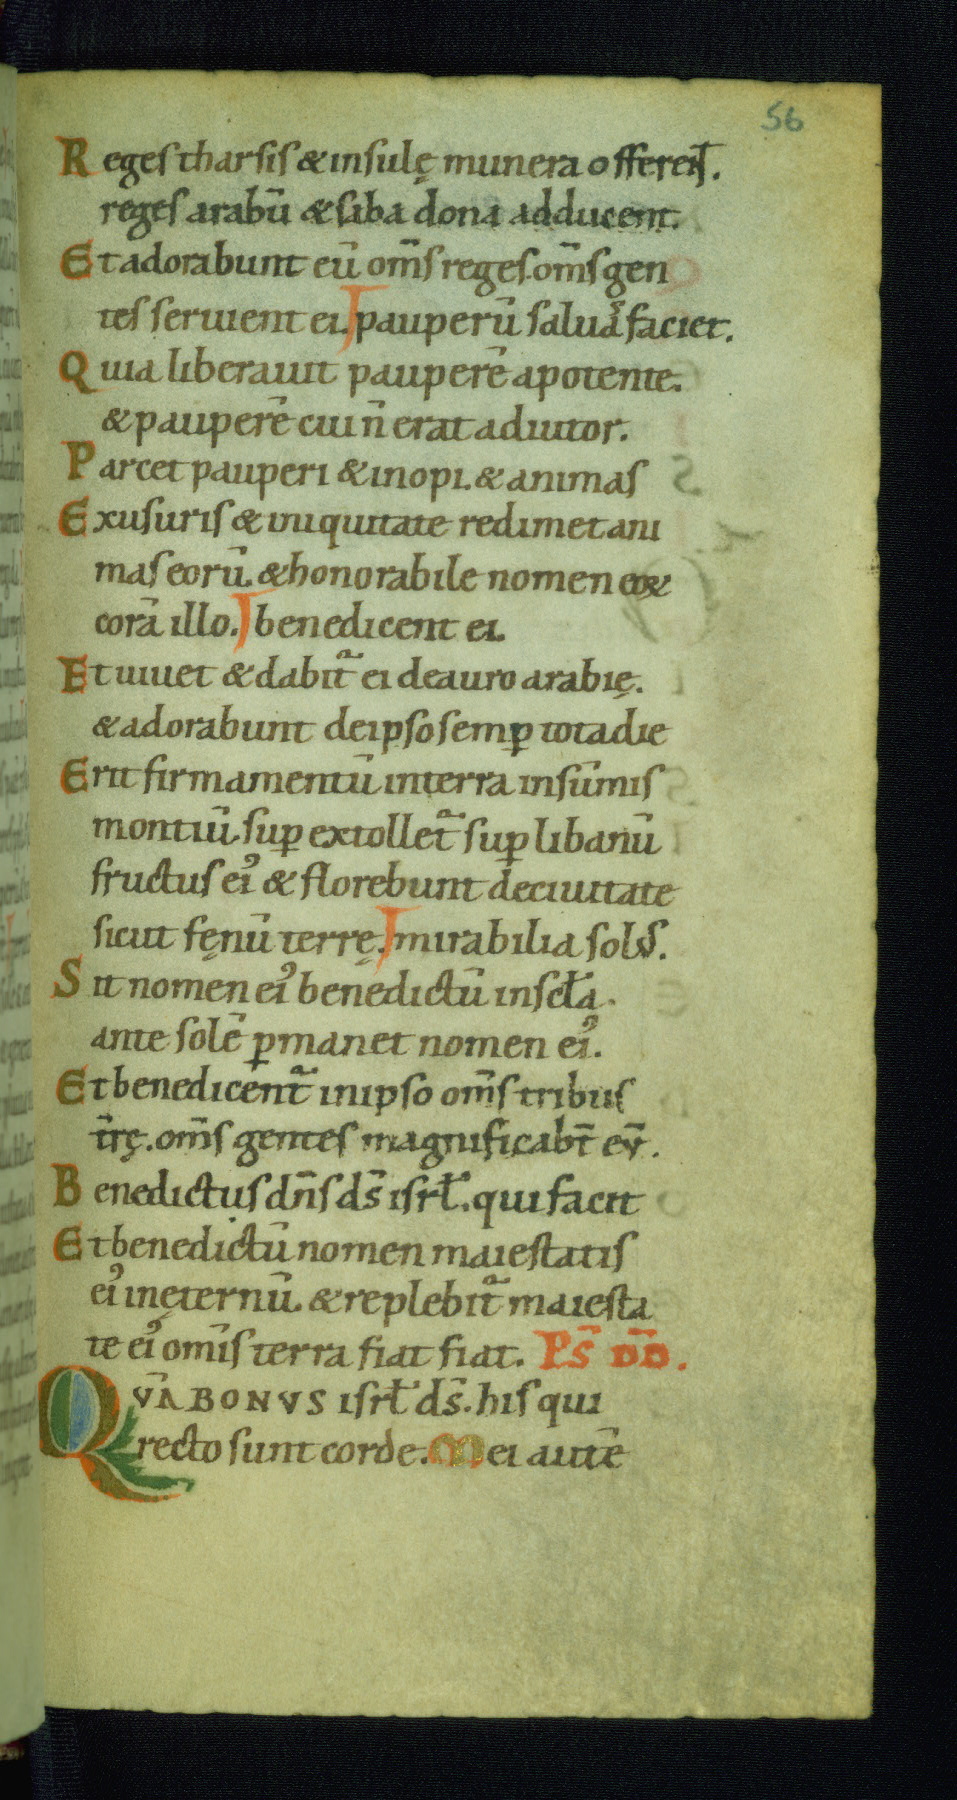 56
Reges tharsis & insulę munera offerent̄.
reges arabū & saba dona adducent.
Et adorabunt eū om̄s reges. om̄s gen
tes seruient ei. pauperū saluā faciet.
Quia liberauit pauperē a potente.
& pauperē cui n̄ erat adiutor.
Parcet pauperi & inopi. & animas
Ex usuris & iniquitate redimet ani
mas eorū. & honorabile nomen eoꝝ
corā illo. benedicent ei.
Et uiuet & dabit᷑ ei de auro arabię.
& adorabunt de ipso semꝑ tota die
Erit firmamentū in terra in sūmis
montiū. suꝑ extollet᷑ suꝑ libanū
fructus eiꝰ & florebunt de ciuitate
sicut fęnū terrę. mirabilia solꝰ.
Sit nomen eiꝰ benedictū in sc̄la.
ante solē ꝑmanet nomen eiꝰ.
Et benedicent᷑ in ipso om̄s tribus
t̄rę. om̄s gentes magnificab̄t eū.
Benedictus dn̄s ds̄ isrł. qui facit
Et benedictū nomen maiestatis
eiꝰ in ęternū. & replebit᷑ maiesta
te eiꝰ omīs terra fiat fiat. Ps̄ DD̄.
QVĀ BONVS isrł ds̄. his qui
recto sunt corde. Mei autē